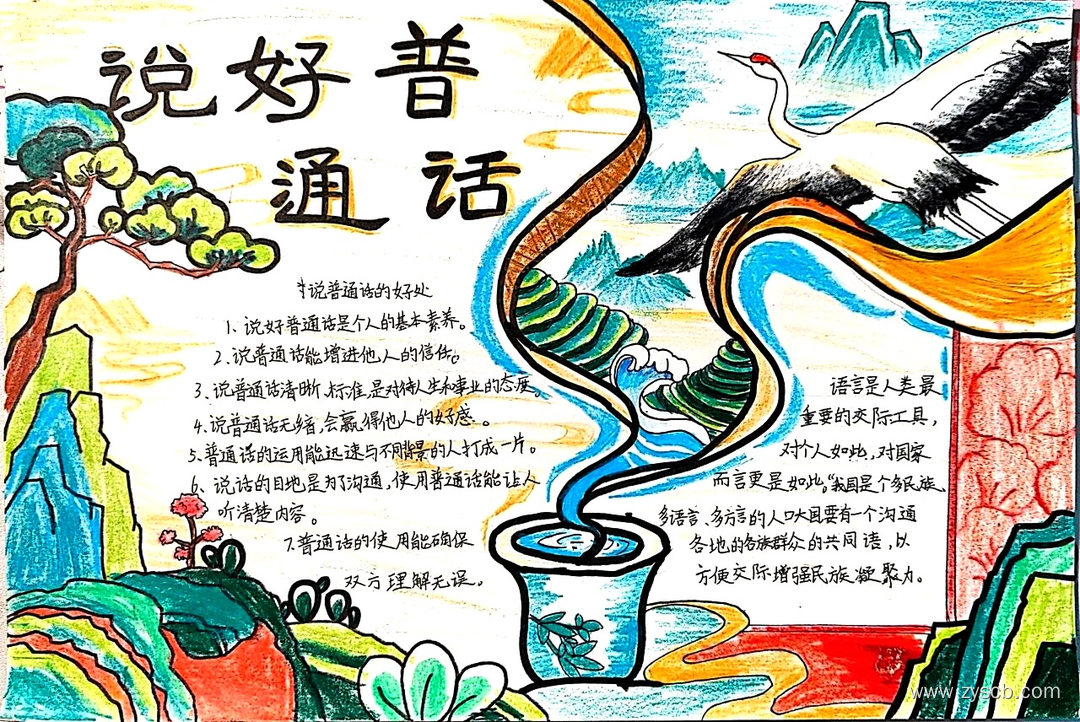 说好普
通话
说普通话的好处
1、说好普通话是个人的基本素养。
2、说普通话能增进他人的信任。
3、说普通话清晰、标准,是对待人生和事业的态度。
4、说普通话无错,会赢得他人的好感。
5、普通话的运用能迅速与不同背景的人打成一片。
6、说话的目地是为了沟通,使用普通话能让人
听清楚内容。
7、普通话的使用能确保
双方理解无误。
语言是人类最
重要的交际工具,
对个人如此,对国家
而言更是如此。"我国是个多民族、
多语言、多方言的人口大国要有一个沟通
各地的各族群众的共同语,以
方便交际增强民族凝聚力。
www.zyscb.com